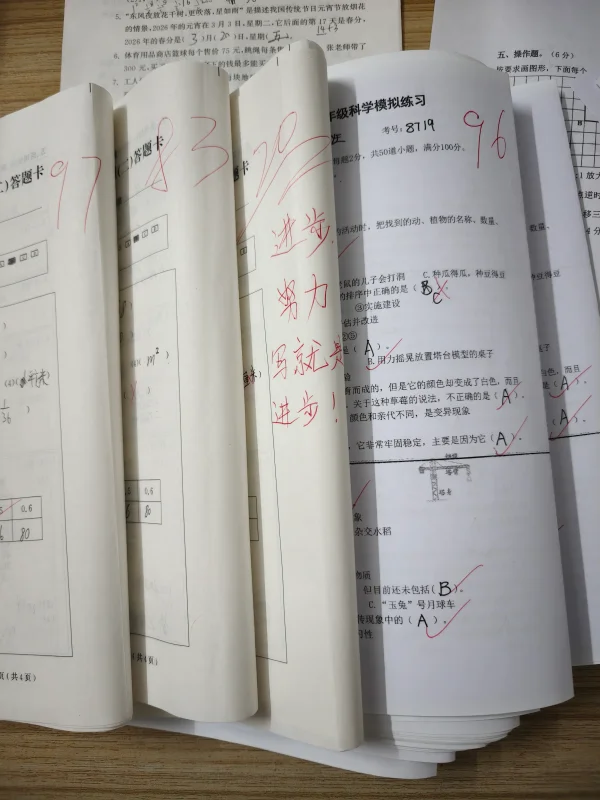 5. “东风夜放花千树,更吹落,星如雨”是描述我国传统节日元宵节放烟花
的情景,2026年的元宵在3月3日,星期二,它后面的第17天是春分,
2026年的春分是( 3 )月( 20 )日,星期( 五 )。
14+3
6. 体育用品商店篮球每个售价75元,跳绳每条
张老师带了
300元,买
下的钱最多能买
7. 工人
五、操作题。(6分)
按要求画图形,下面每个
8
97
二)答题卡
页(共4页)
0.6
80
83
(二)答题卡
m²
0.6
80
页(共4页)
20
题卡
进步,
努力
写就是
进步!
年级科学模拟练习
考号:8719
96
每题2分,共50道小题,满分100分。
的活动时,把找到的动、植物的名称、数量、
鼠的儿子会打洞 C. 种瓜得瓜,种豆得豆
的排序中正确的是(B
C
③实施建设
估并改进
是( A )。
B. 用力摇晃放置塔台模型的桌子
育而成的,但是它的颜色却变成了白色,而且
。关于这种草莓的说法,不正确的是( A )。
颜色和亲代不同,是变异现象
,它非常牢固稳定,主要是因为它( A )。
象
杂交水稻
但目前还未包括( B )。
C. “玉兔”号月球车
传现象中的( A )。
习性
数量、
种豆得豆
白色,而且
是( A )。
( A )。